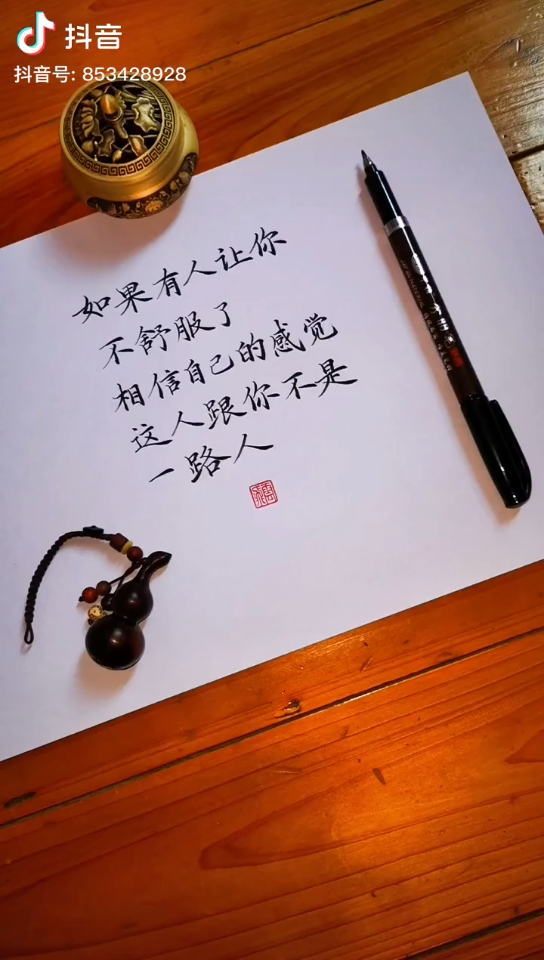 抖音
抖音号: 853428928
如果有人让你
不舒服了
相信自己的感觉
这人跟你不是
一路人